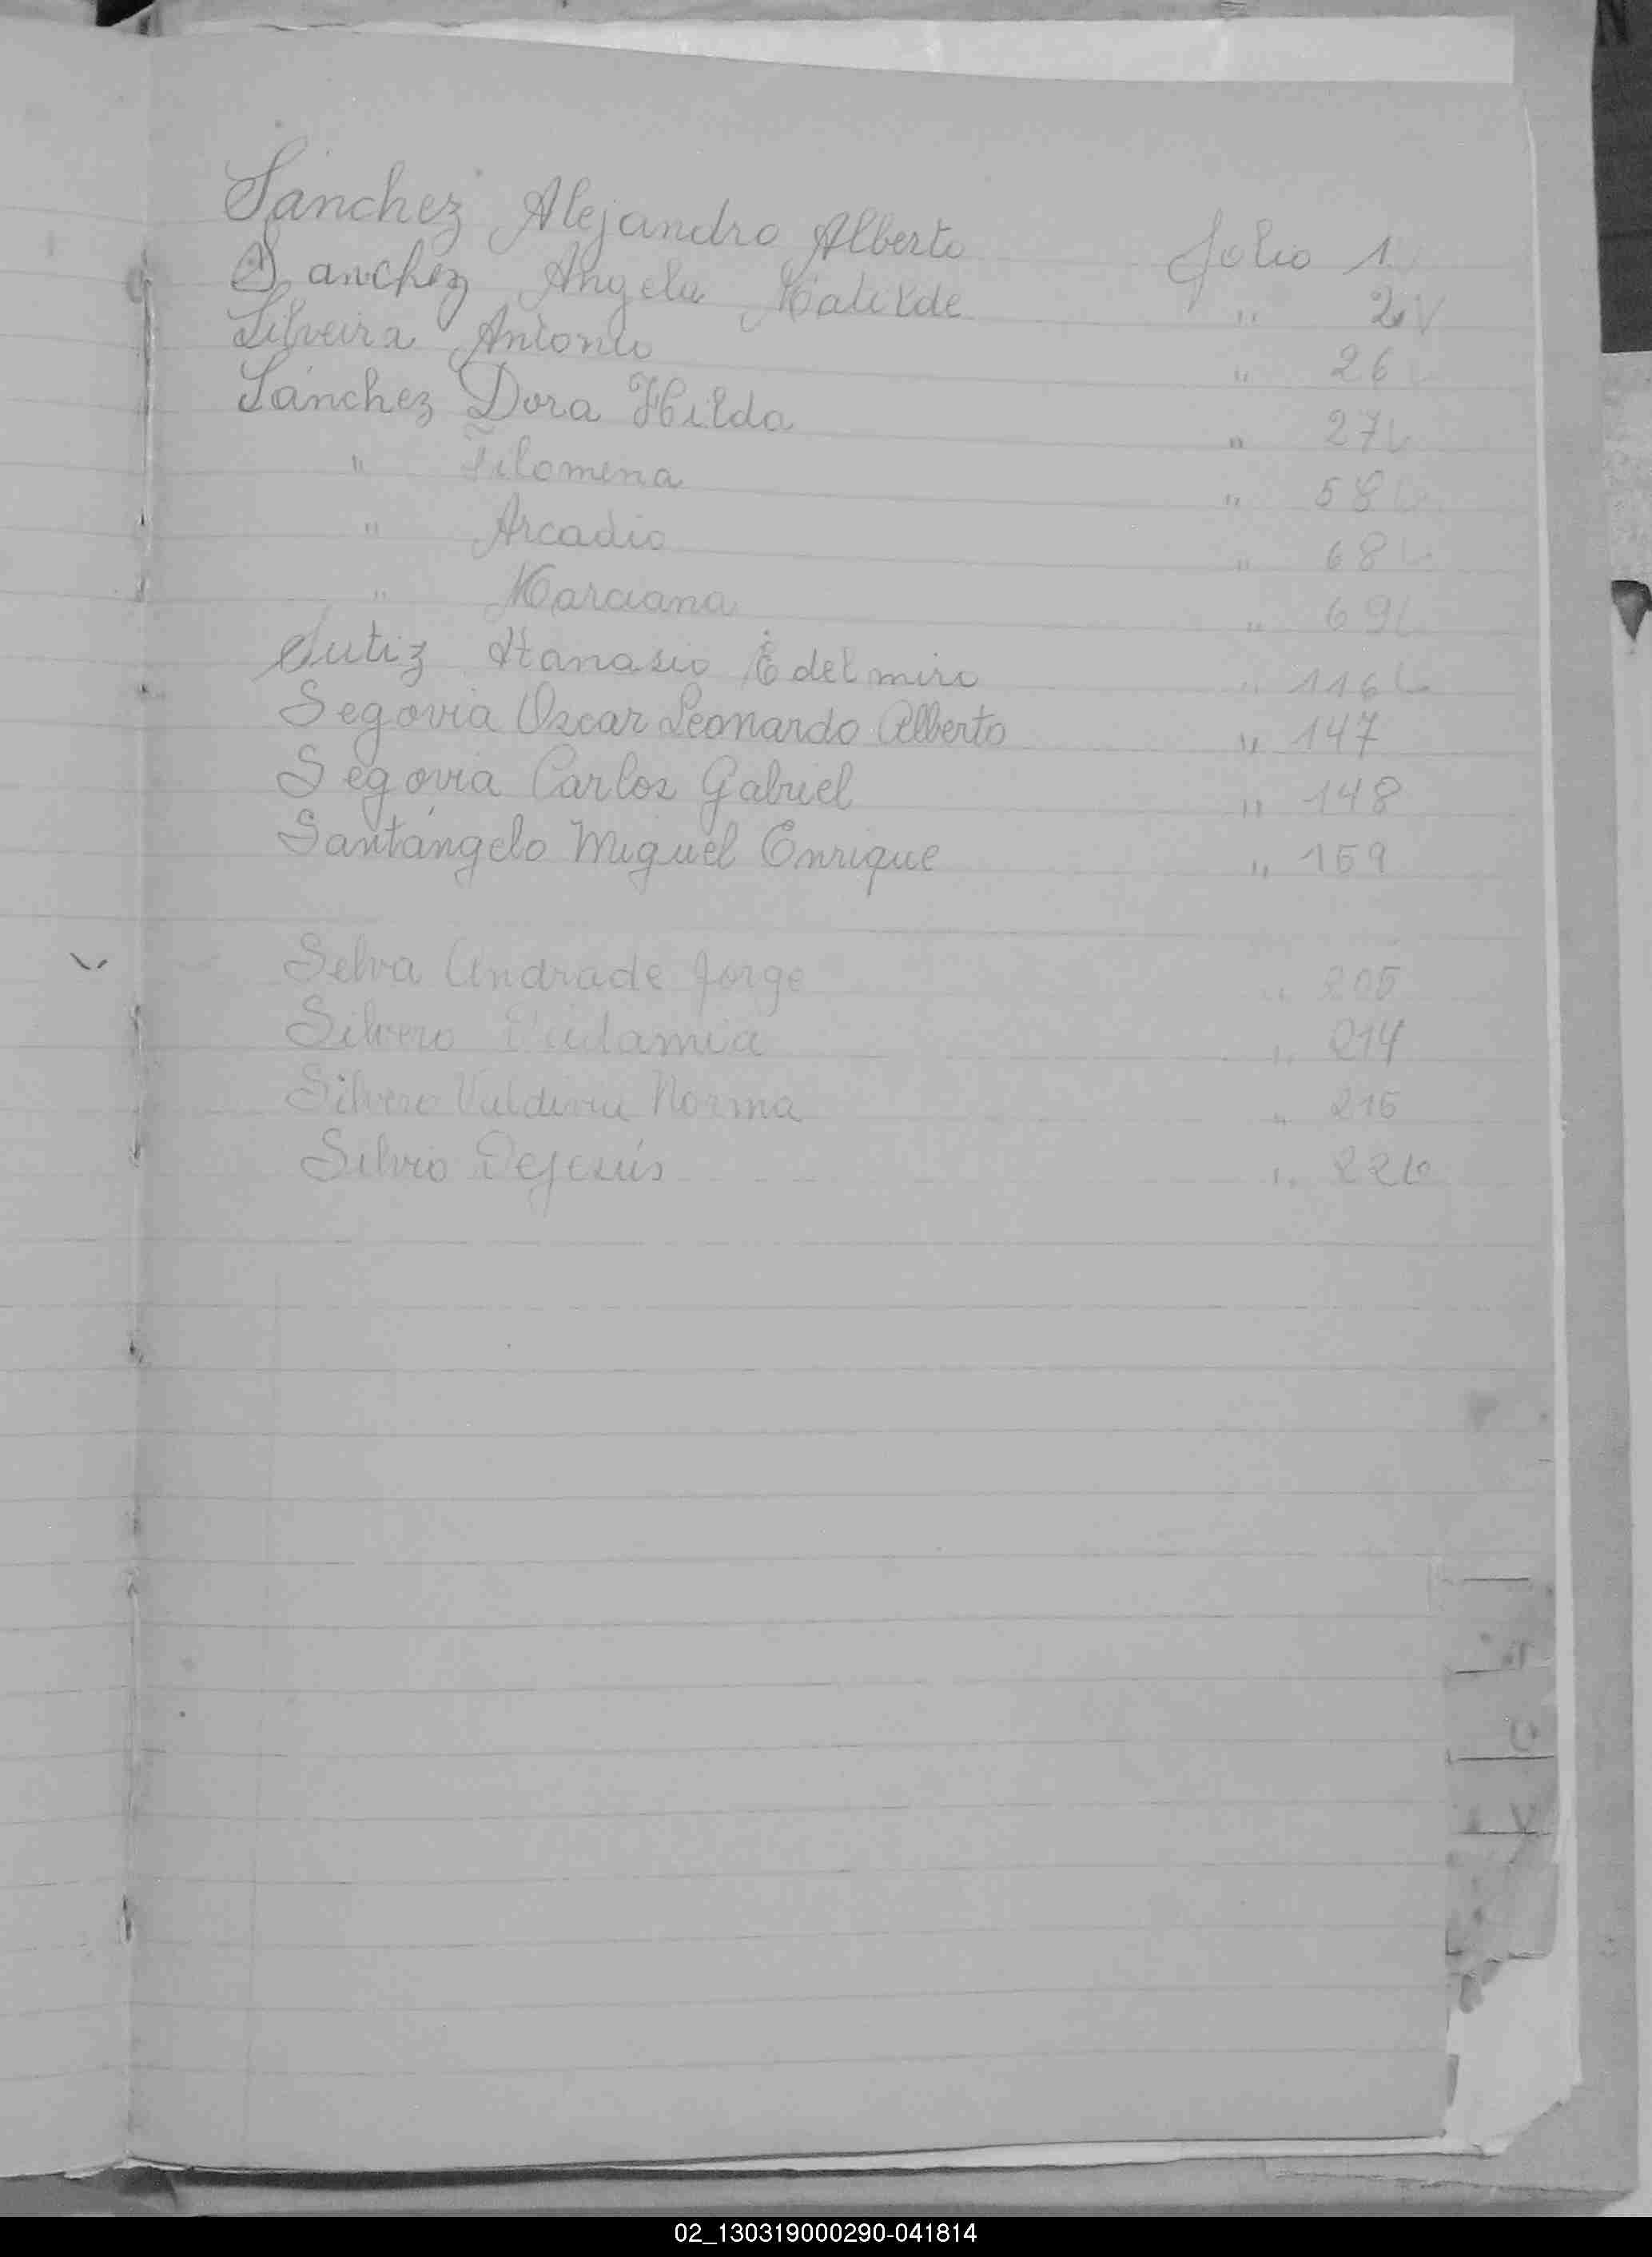 Sánchez Alejandro Alberto folio 1
Sanchez Angela Matilde " 2
Silveira Antonio " 26
Sánchez Dora Hilda " 27
" Filomena " 58
" Arcadio " 68
" Marciana " 69
Sutiz Atanasio Edelmiro " 116
Segovia Oscar Leonardo Alberto " 147
Segovia Carlos Gabriel " 148
Santángelo Miguel Enrique " 159
Selva Andrade Jorge " 205
Silvero " 214
Silvero Norma " 215
Silvio Dejesús " 221
U
V
02_130319000290-041814